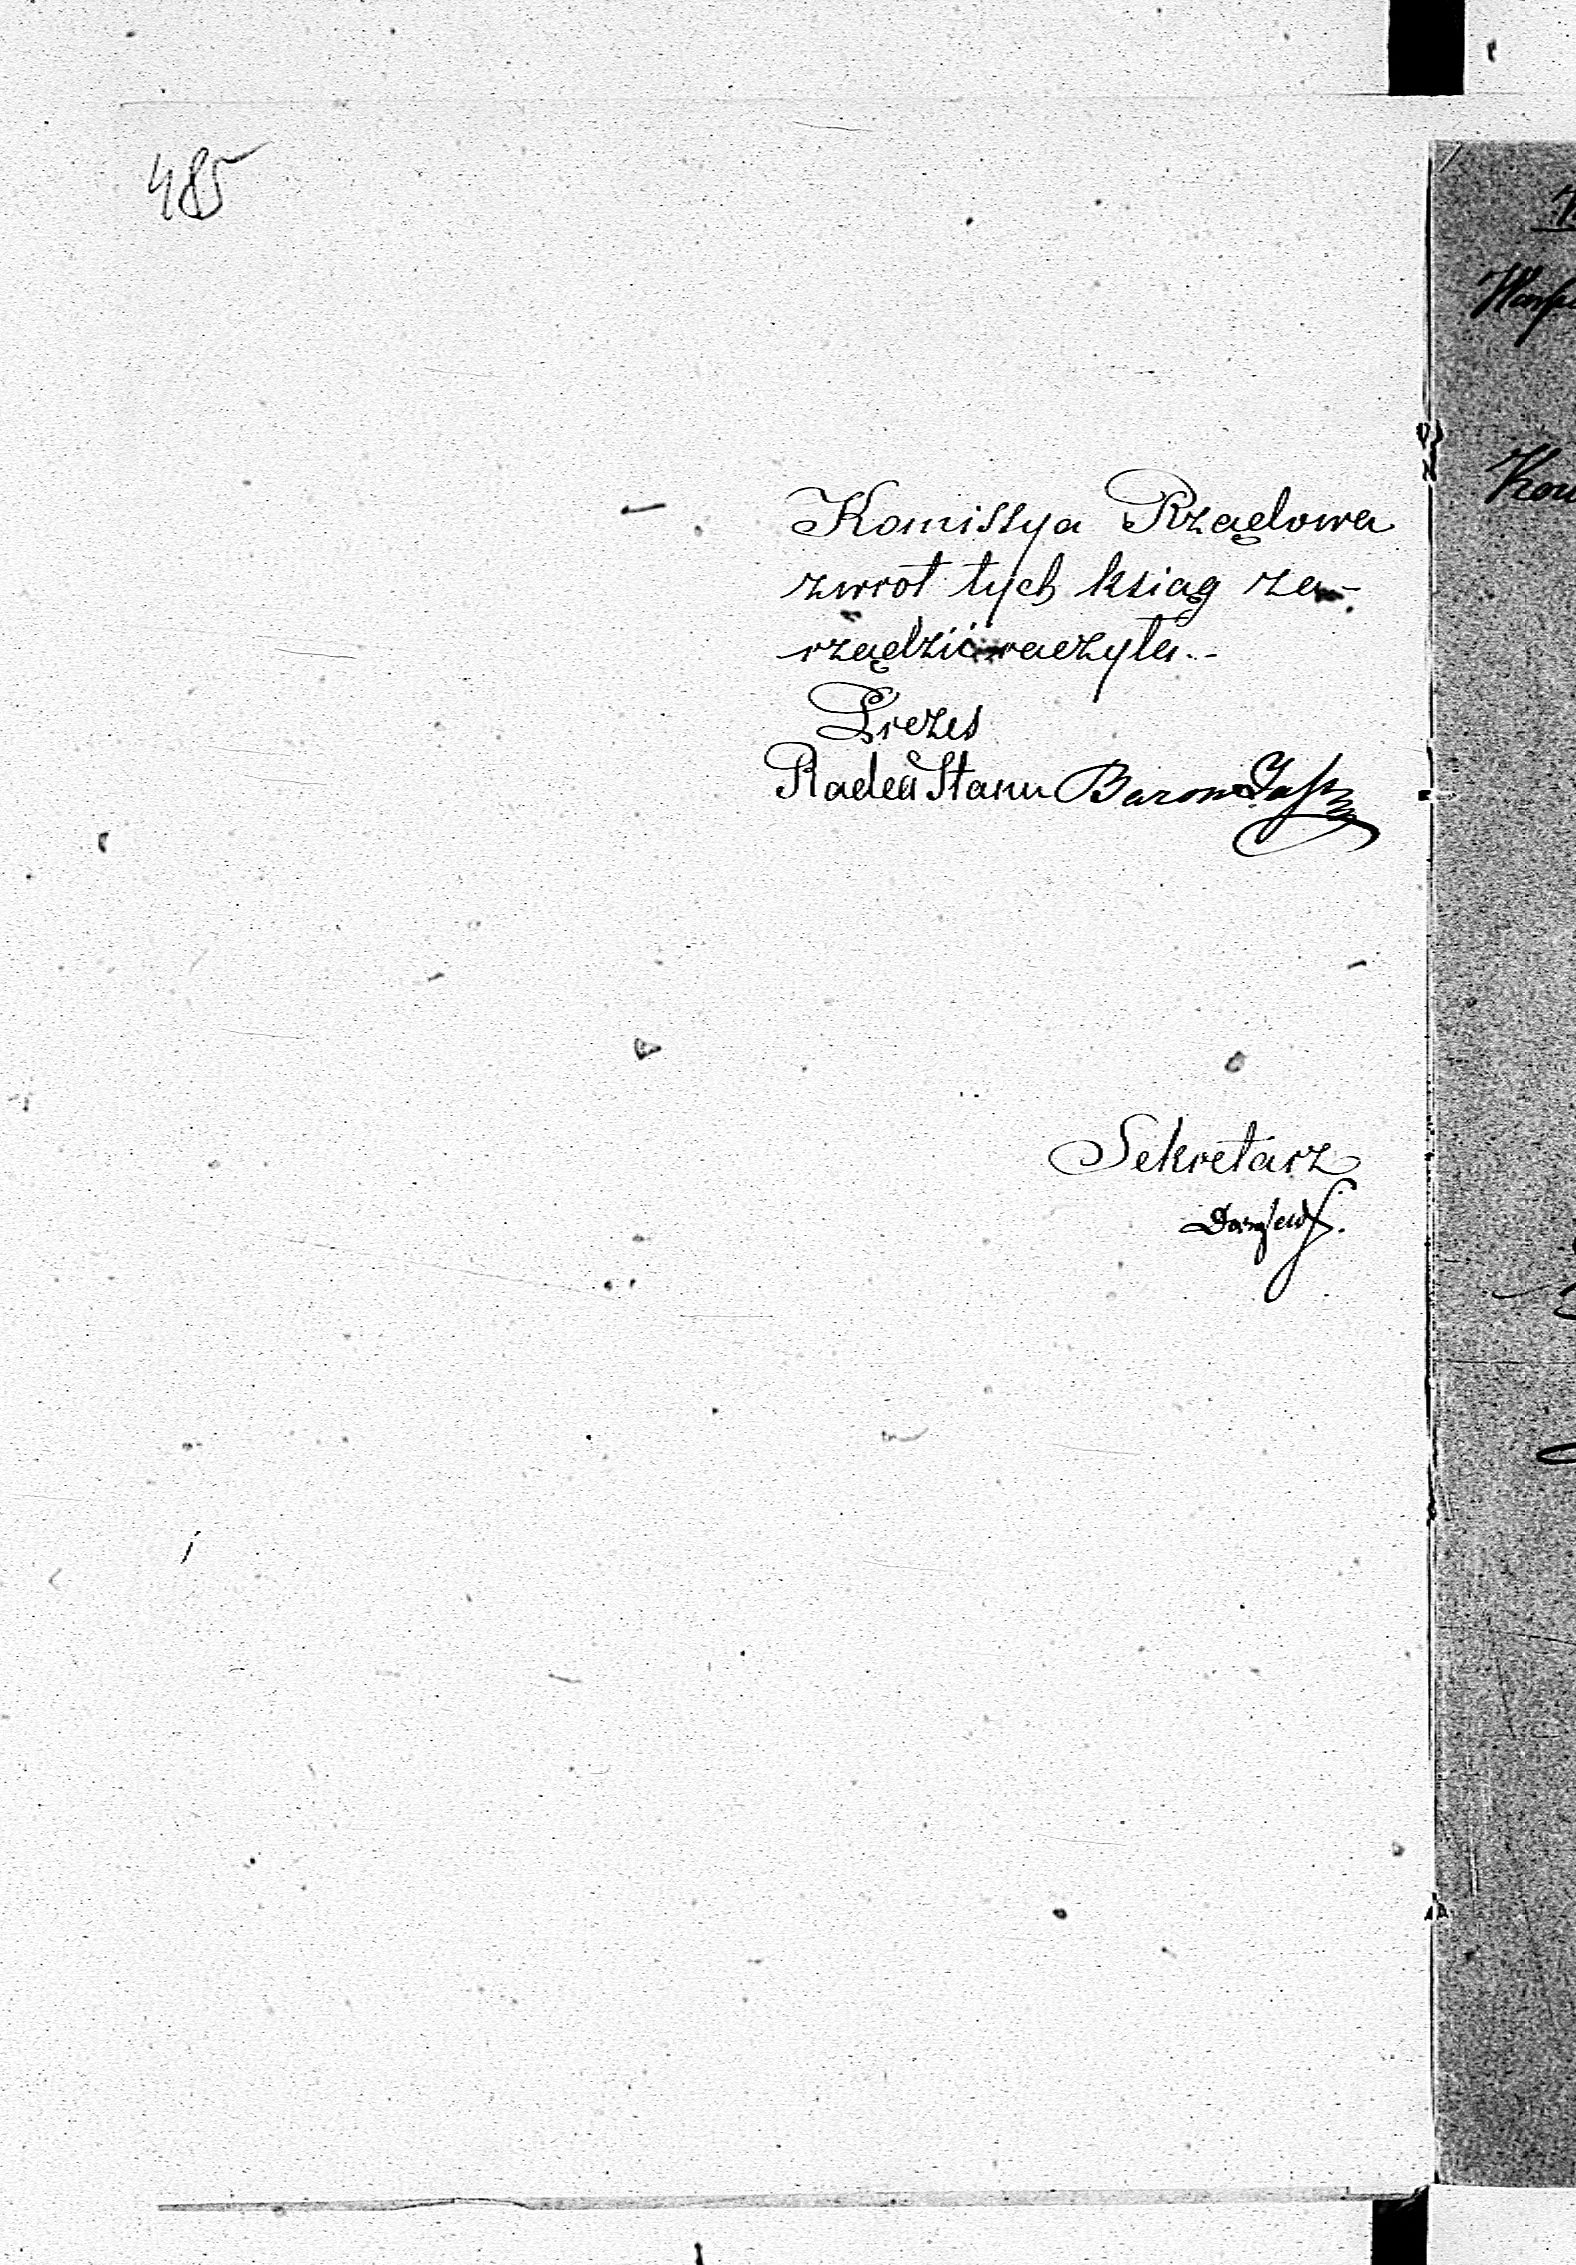 485
Komissya Rządowa
zwrot tych ksiąg za-
rządzić raczyła.-
Prezes
Radca Stanu Baron
Sekretarz